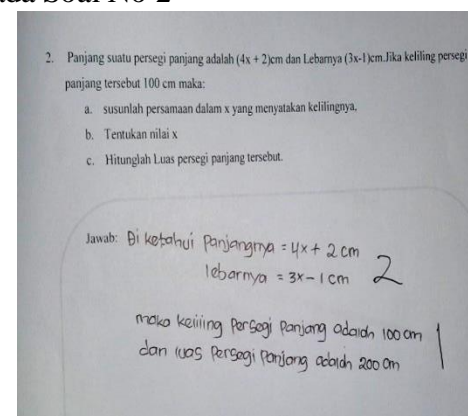 ada Soal No 2
2. Panjang suatu persegi panjang adalah (4x + 2)cm dan Lebarnya (3x-1)cm.Jika keliling persegi
panjang tersebut 100 cm maka:
a. susunlah persamaan dalam x yang menyatakan kelilingnya.
b. Tentukan nilai x
c. Hitunglah Luas persegi panjang tersebut.
Jawab: Di ketahui Panjangnya = 4x + 2 cm
lebarnya = 3x - 1 cm 2
maka keliling Persegi Panjang adalah 100 cm 1
dan luas Persegi Panjang adalah 200 cm